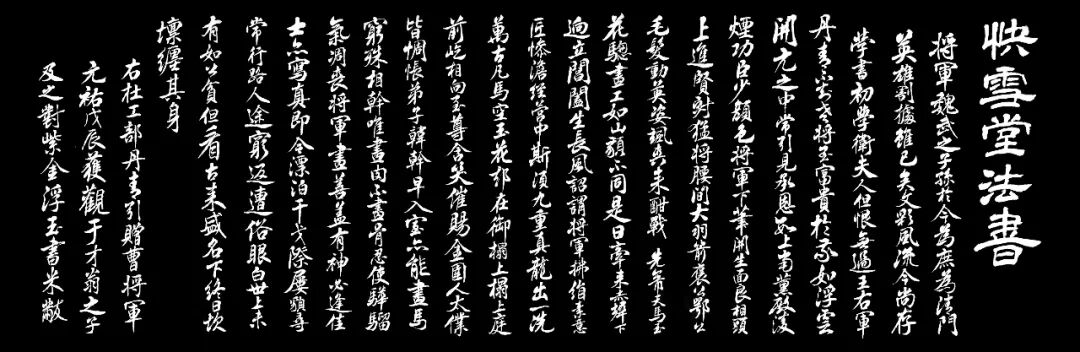 快雪堂法書
將軍魏武之子孫於今為庶為清門
英雄割據雖已矣文彩風流今尚存
學書初學衛夫人但恨無過王右軍
丹青不知老將至富貴於我如浮雲
開元之中常引見承恩數上南薰殿凌
煙功臣少顏色將軍下筆開生面良相頭
上進賢冠猛將腰間大羽箭褒公鄂公
毛髮動英姿颯爽來酣戰 先帝天馬玉
花驄畫工如山貌不同是日牽來赤墀下
迥立閶闔生長風詔謂將軍拂絹素意
匠慘澹經營中斯須九重真龍出一洗
萬古凡馬空玉花却在御榻上榻上庭
前屹相向至尊含笑催賜金圉人太僕
皆惆悵弟子韓幹早入室亦能畫馬
窮殊相幹唯畫肉不畫骨忍使驊騮
氣凋喪將軍畫善蓋有神必逢佳
士亦寫真即今漂泊干戈際屢貌尋
常行路人途窮返遭俗眼白世上未
有如公貧但看古來盛名下終日坎
壈纏其身
右杜工部丹青引贈曹將軍
元祐戊辰獲觀于才翁之子
及之對紫金浮玉書米黻